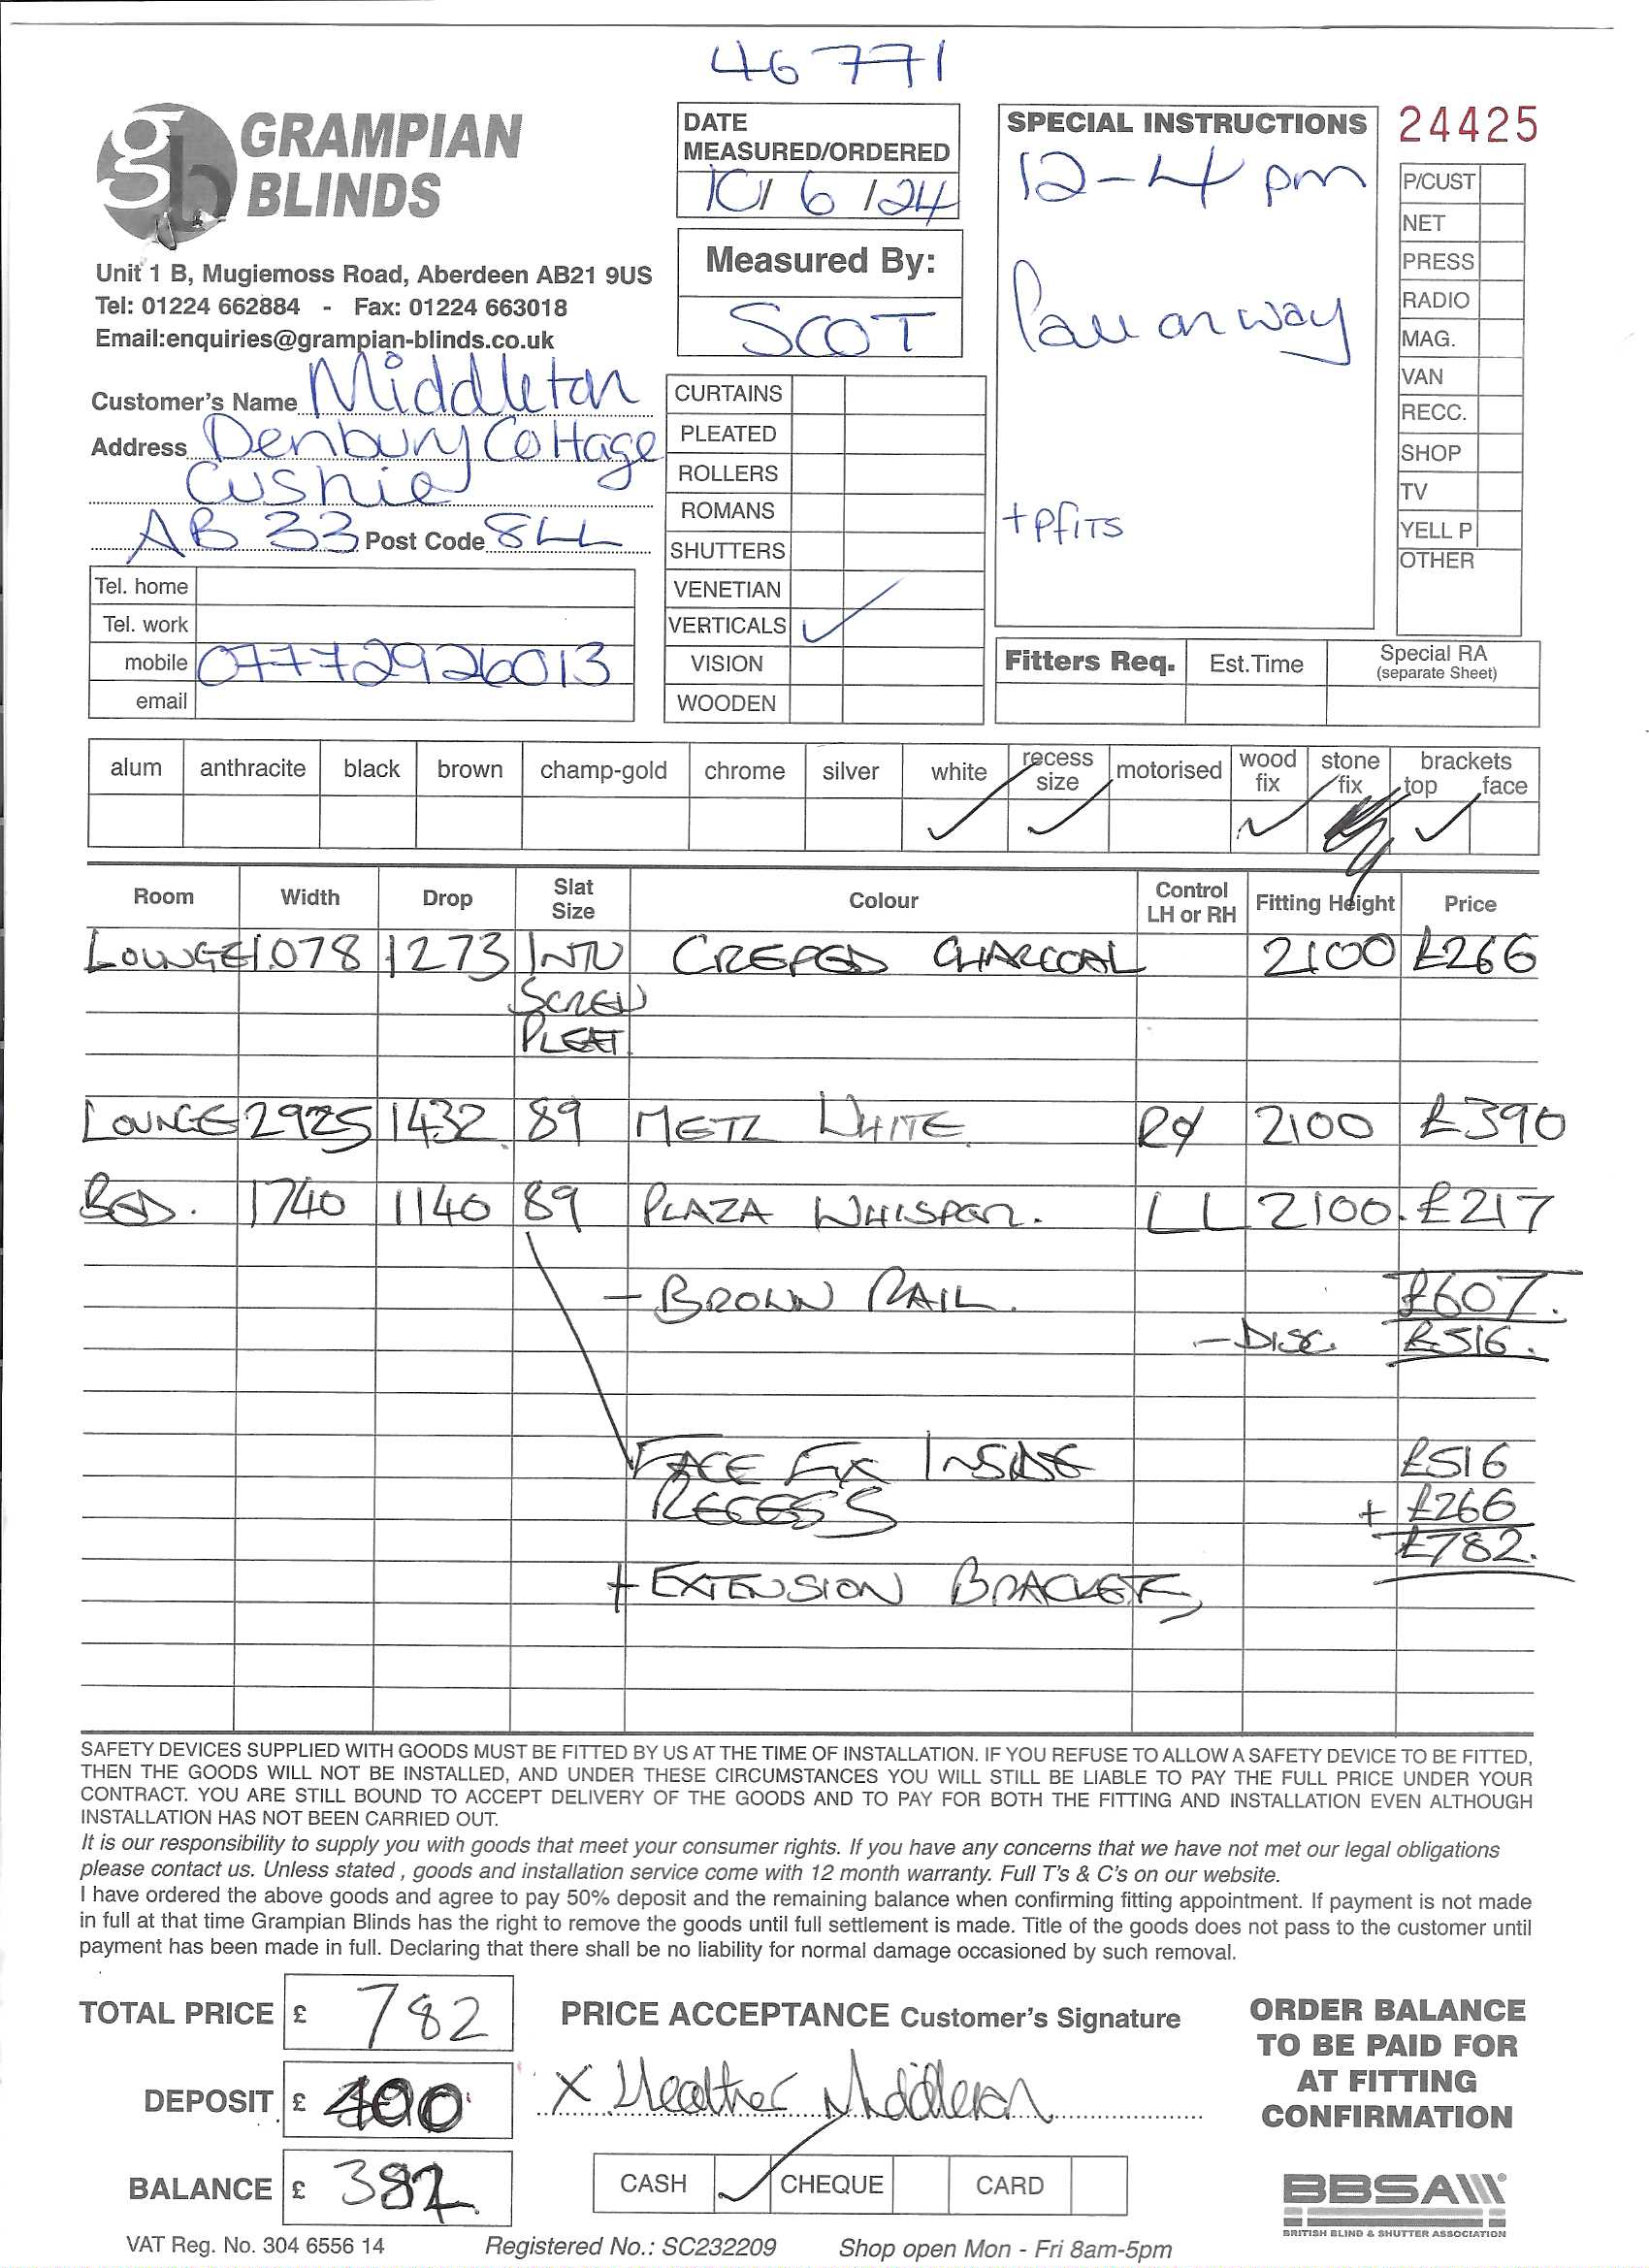 46771
GRAMPIAN
BLINDS
Unit 1 B, Mugiemoss Road, Aberdeen AB21 9US
Tel: 01224 662884 - Fax: 01224 663018
Email:enquiries@grampian-blinds.co.uk
Customer's Name Middleton
Address Denbury Cottage
Cushnie
AB 33 Post Code 8LL
Tel. home
Tel. work
mobile 07772926013
email
DATE
MEASURED/ORDERED
10/6/24
Measured By:
SCOT
CURTAINS
PLEATED
ROLLERS
ROMANS
SHUTTERS
VENETIAN
VERTICALS ✓
VISION
WOODEN
SPECIAL INSTRUCTIONS
12-4 pm
on way
+pfiTS
24425
P/CUST
NET
PRESS
RADIO
MAG.
VAN
RECC.
SHOP
TV
YELL P
OTHER
Fitters Req. Est.Time Special RA
(separate Sheet)
alum anthracite black brown champ-gold chrome silver white recess size motorised wood fix stone fix brackets top face
✓ ✓ ✓ ✓
Room Width Drop Slat Size Colour Control LH or RH Fitting Height Price
LOUNGE 1078 1273 INTU CREPED CHARCOAL 2100 £266
SCREW
PLEAT
LOUNGE 2925 1432 89 METZ WHITE 2100 £390
BED. 1740 1140 89 PLAZA WHISPER. LL 2100. £217
- BROWN RAIL. £607.
- DISC. £516.
FACE FIX INSIDE £516
RECESS + £266
£782.
+ EXTENSION BRACKETS
SAFETY DEVICES SUPPLIED WITH GOODS MUST BE FITTED BY US AT THE TIME OF INSTALLATION. IF YOU REFUSE TO ALLOW A SAFETY DEVICE TO BE FITTED,
THEN THE GOODS WILL NOT BE INSTALLED, AND UNDER THESE CIRCUMSTANCES YOU WILL STILL BE LIABLE TO PAY THE FULL PRICE UNDER YOUR
CONTRACT. YOU ARE STILL BOUND TO ACCEPT DELIVERY OF THE GOODS AND TO PAY FOR BOTH THE FITTING AND INSTALLATION EVEN ALTHOUGH
INSTALLATION HAS NOT BEEN CARRIED OUT.
It is our responsibility to supply you with goods that meet your consumer rights. If you have any concerns that we have not met our legal obligations
please contact us. Unless stated , goods and installation service come with 12 month warranty. Full T's & C's on our website.
I have ordered the above goods and agree to pay 50% deposit and the remaining balance when confirming fitting appointment. If payment is not made
in full at that time Grampian Blinds has the right to remove the goods until full settlement is made. Title of the goods does not pass to the customer until
payment has been made in full. Declaring that there shall be no liability for normal damage occasioned by such removal.
TOTAL PRICE £ 782
DEPOSIT £ 400
BALANCE £ 382
PRICE ACCEPTANCE Customer's Signature
X Heather Middleton
CASH ✓ CHEQUE CARD
ORDER BALANCE
TO BE PAID FOR
AT FITTING
CONFIRMATION
BBSA
BRITISH BLIND & SHUTTER ASSOCIATION
VAT Reg. No. 304 6556 14 Registered No.: SC232209 Shop open Mon - Fri 8am-5pm